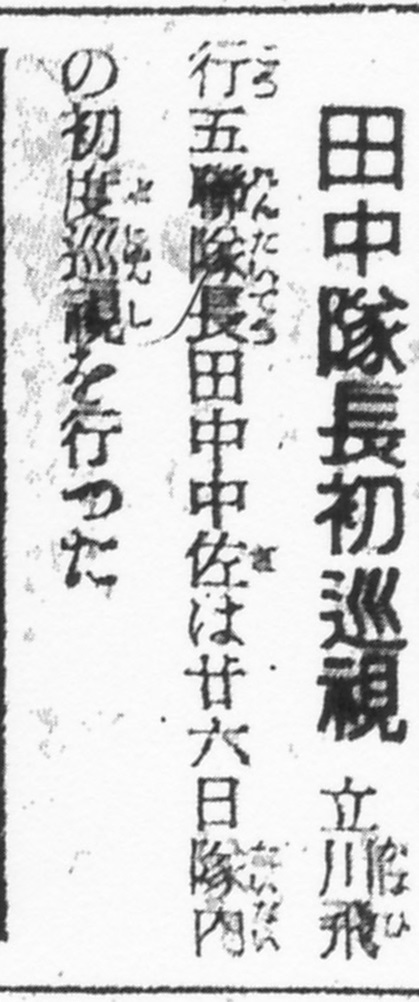 田中隊長初巡視 立川飛
行五聯隊長田中中佐は廿六日隊内
の初度巡視を行つた